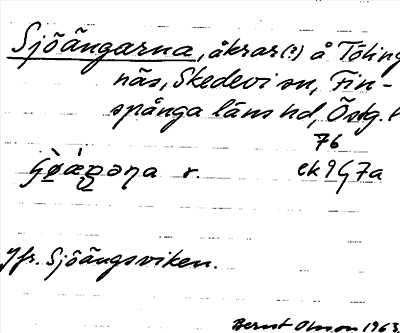 Sjöängarna, åkrar(?) å Töling
näs, Skedevi sn, Fin-
spånga läns hd, Östg.
76
ek 9G7a
r.
Jfr. Sjöängsviken.
Bernt Olsson 1963